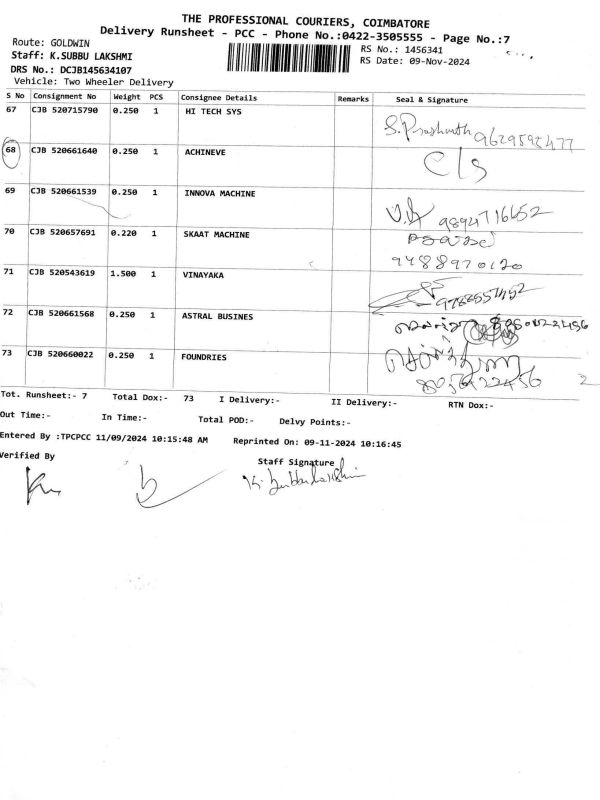 THE PROFESSIONAL COURIERS, COIMBATORE
Delivery Runsheet - PCC - Phone No.:0422-3505555 - Page No.:7
Route: GOLDWIN
Staff: K.SUBBU LAKSHMI
DRS No.: DCJB145634107
Vehicle: Two Wheeler Delivery
RS No.: 1456341
RS Date: 09-Nov-2024
S No Consignment No Weight PCS Consignee Details Remarks Seal & Signature
67 CJB 520715790 0.250 1 HI TECH SYS S. Prashanth 9629595477
68 CJB 520661640 0.250 1 ACHINEVE C/S
69 CJB 520661539 0.250 1 INNOVA MACHINE 9894716652
70 CJB 520657691 0.220 1 SKAAT MACHINE
9488970120
71 CJB 520543619 1.500 1 VINAYAKA
72 CJB 520661568 0.250 1 ASTRAL BUSINES
73 CJB 520660022 0.250 1 FOUNDRIES
8056122456 2
Tot. Runsheet:- 7 Total Dox:- 73 I Delivery:- II Delivery:- RTN Dox:-
Out Time:- In Time:- Total POD:- Delvy Points:-
Entered By :TPCPCC 11/09/2024 10:15:48 AM Reprinted On: 09-11-2024 10:16:45
Verified By Staff Signature
K. Subbulakshmi